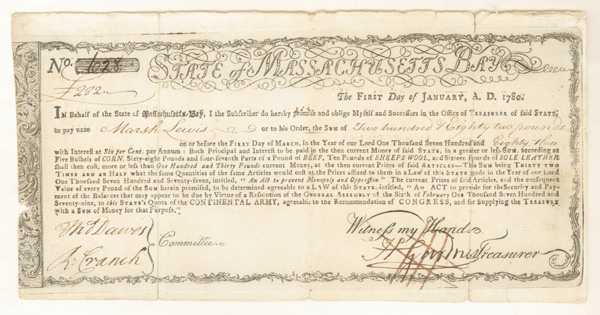 No. 1628
STATE of MASSACHUSETTS BAY.
£282
The FIRST Day of JANUARY, A. D. 1780.
IN Behalf of the State of Massachusetts-Bay, I the Subscriber do hereby promise and oblige Myself and Successors in the Office of TREASURER of said STATE,
to pay unto Marsh Lewis or to his Order, the SUM of Two hundred & Eighty two pounds
on or before the FIRST Day of MARCH, in the Year of our Lord One Thousand Seven Hundred and Eighty three
with Interest at Six per Cent. per Annum: Both Principal and Interest to be paid in the then current Money of said STATE, in a greater or less SUM, according as
Five Bushels of CORN, Sixty-eight Pounds and four-seventh Parts of a Pound of BEEF, Ten Pounds of SHEEPS WOOL, and Sixteen Pounds of SOLE LEATHER
shall then cost, more or less than One Hundred and Thirty Pounds current Money, at the then current Prices of said ARTICLES—This SUM being THIRTY TWO
TIMES AND AN HALF what the same Quantities of the same Articles would cost at the Prices affixed to them in a LAW of this STATE made in the Year of our Lord
One Thousand Seven Hundred and Seventy-seven, intitled, "An Act to prevent Monopoly and Oppression." The current Prices of said Articles, and the consequent
Value of every Pound of the Sum herein promised, to be determined agreeable to a LAW of this STATE, intitled, "An ACT to provide for the Security and Payment
of the Balances that may appear to be due by Virtue of a Resolution of the GENERAL ASSEMBLY of the Sixth of February One Thousand Seven Hundred and
Seventy-nine, to this STATE's Quota of the CONTINENTAL ARMY, agreeable to the Recommendation of CONGRESS, and for Supplying the TREASURY
with a SUM of Money for that Purpose."
Thos Dawes
R. Cranch
Committee.
Witness my Hand
H Gardner Treasurer